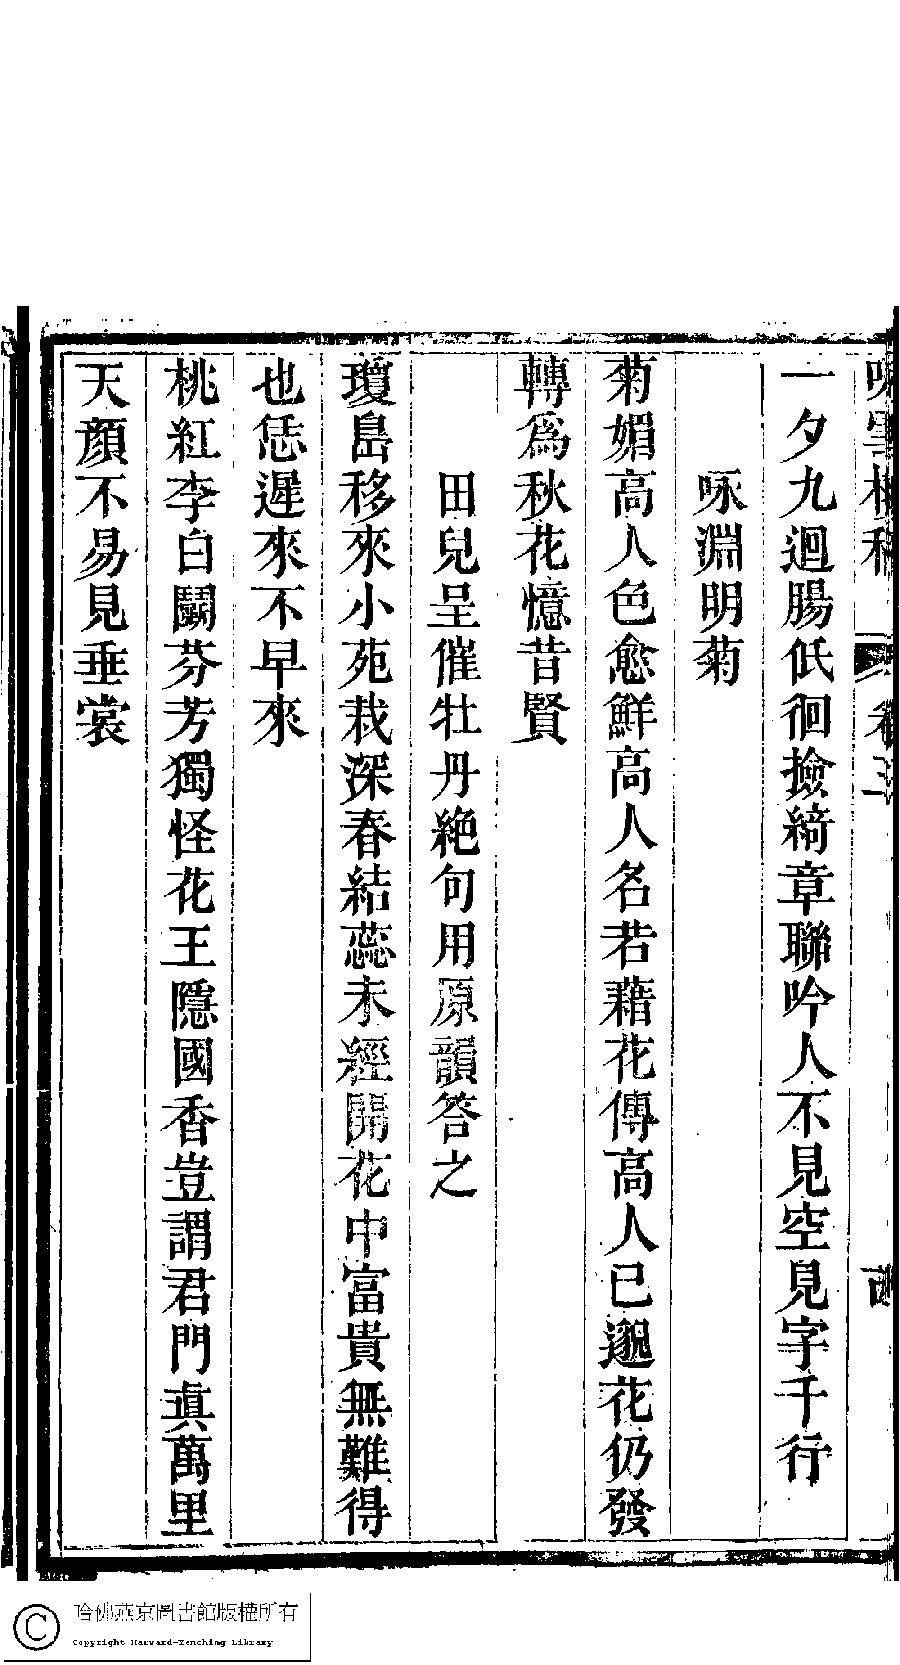 一夕九迴腸低徊撿綺章聯吟人不見空見字千行
咏淵明菊
菊媚高人色愈鮮高人名若藉花傳高人已邈花仍發
轉爲秋花憶昔賢
田兒呈催牡丹絕句用原韻答之
瓊島移來小苑栽深春結蕊未經開花中富貴無難得
也恁遲來不早來
桃紅李白鬭芬芳獨怪花王隱國香豈謂君門真萬里
天顏不易見垂裳
哈佛燕京圖書館版權所有
Copyright Harvard-Yenching Library